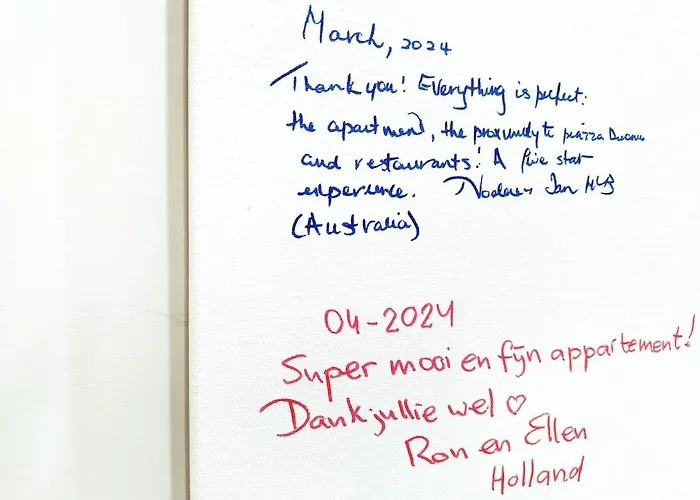 March, 2024
Thank you! Everything is perfect:
the apartment, the proximity to piazza Duomo
and restaurants! A five star
experience. Jan
(Australia)
04-2024
Super mooi en fijn appartement!
Dank jullie wel ♡
Ron en Ellen
Holland